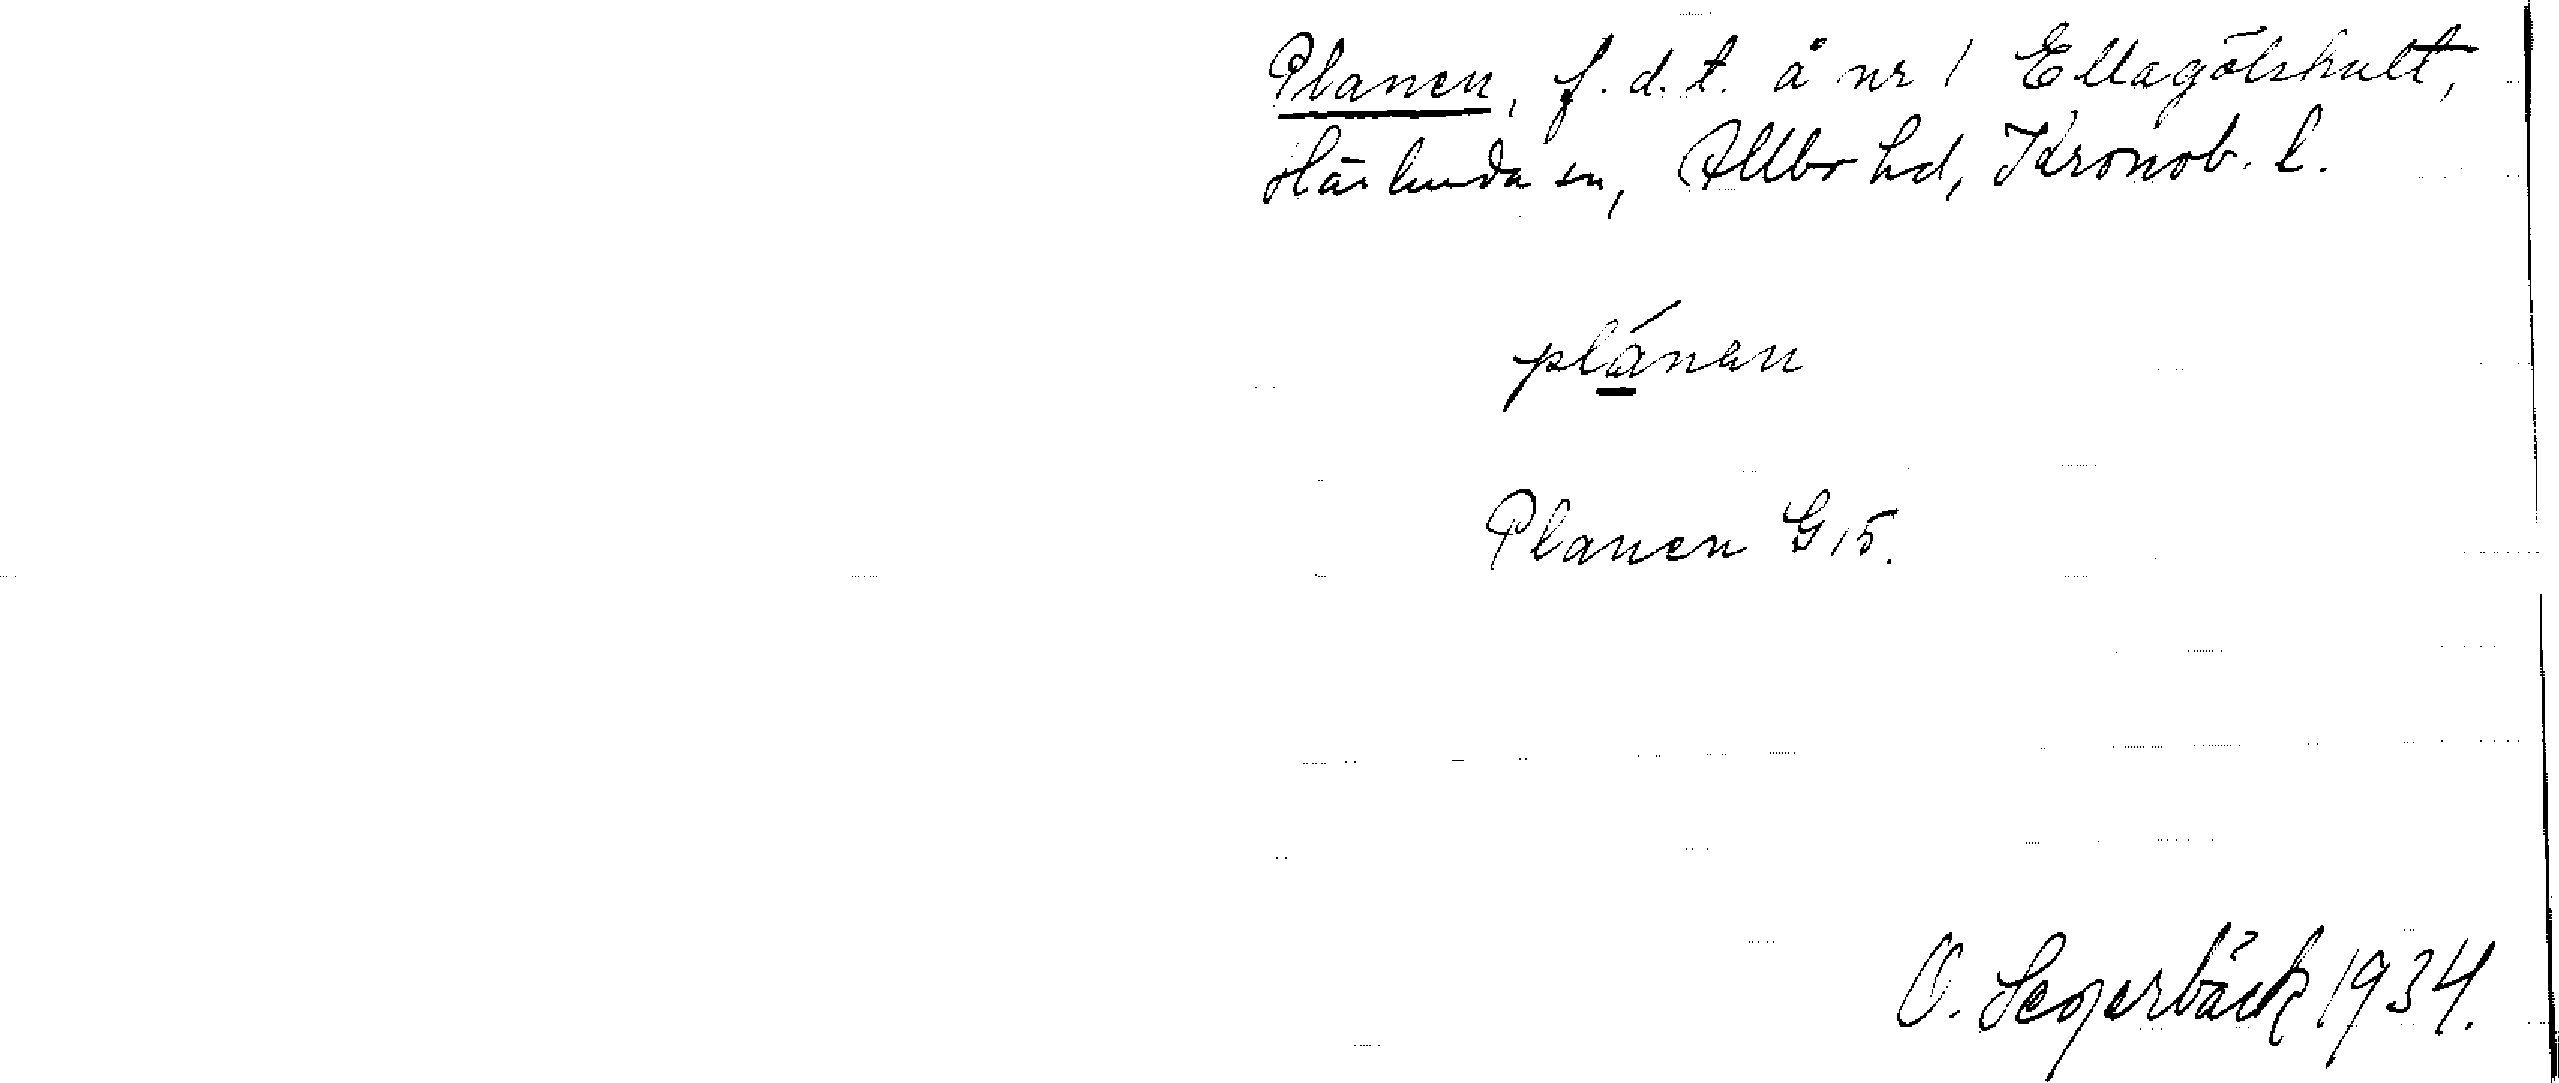 Planen, f.d.t. å nr 1 Ellagölshult,
Härlunda sn, Allbo hd, Kronob. l.
plánan
Planen G 15.
O. Segerbäck 1934.